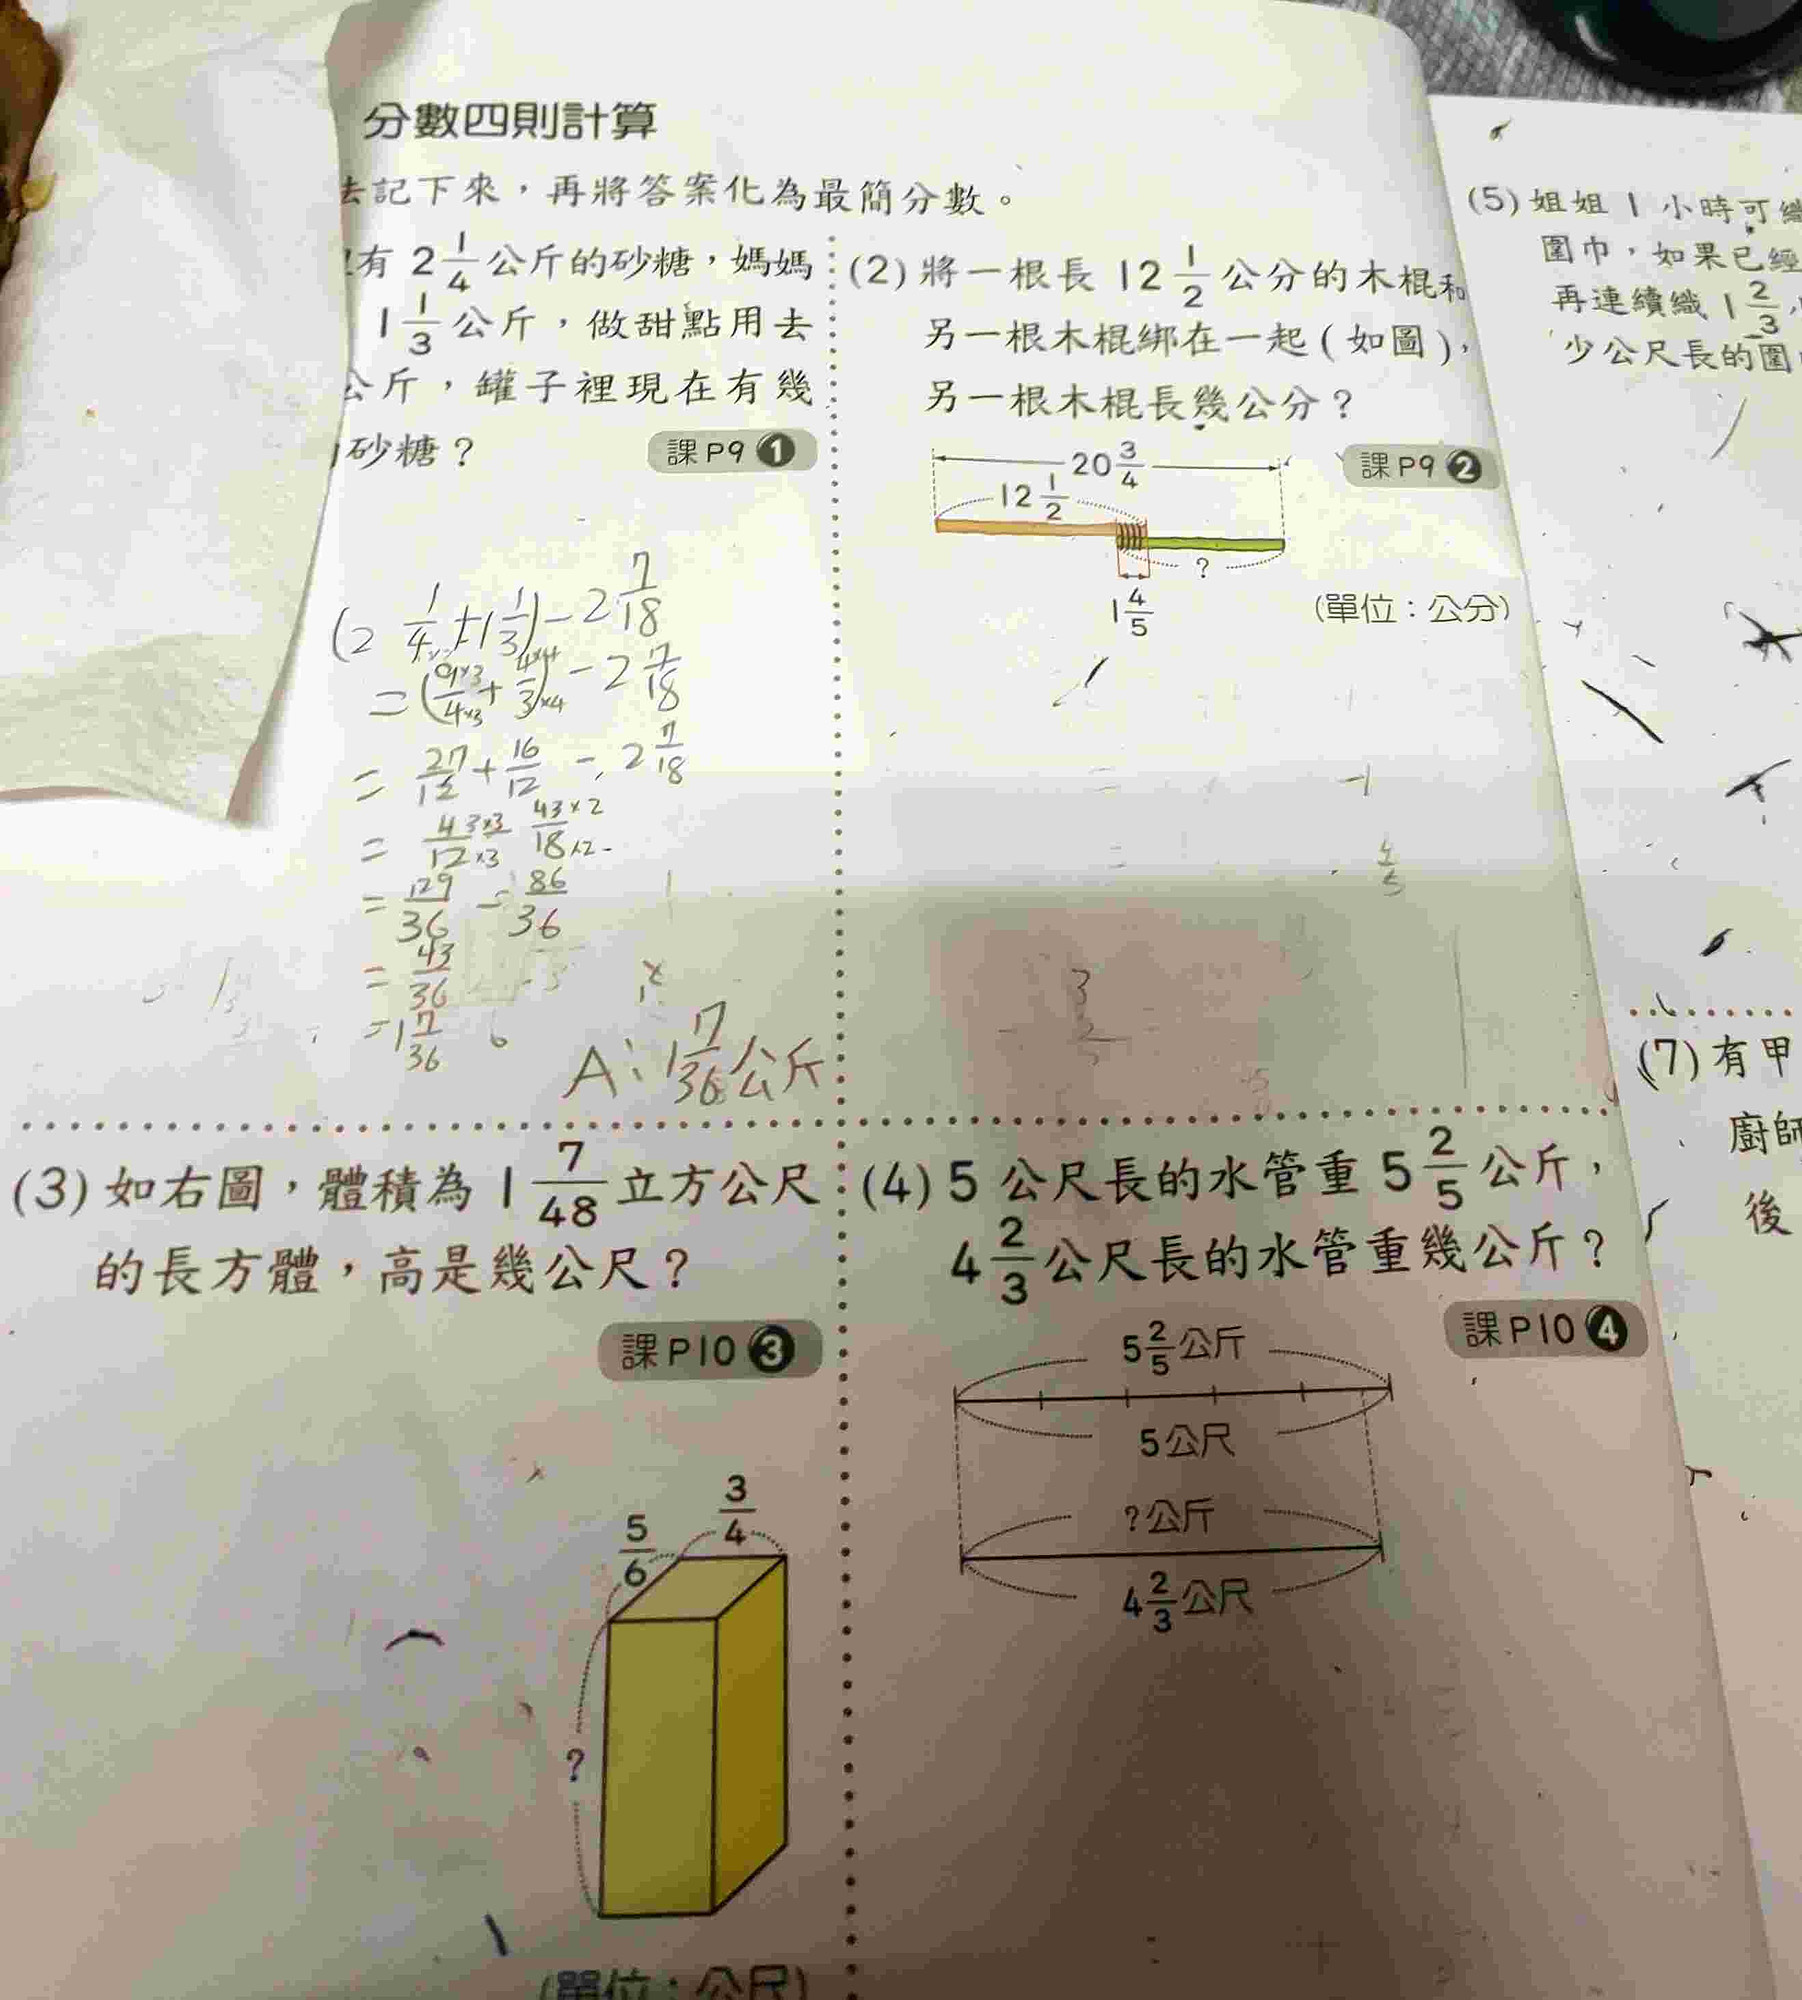 分數四則計算
去記下來，再將答案化為最簡分數。
有 2 1/4 公斤的砂糖，媽媽
1 1/3 公斤，做甜點用去
公斤，罐子裡現在有幾
砂糖？
課P9 1
(2 1/4 + 1 1/3) - 2 7/18
= (9×3/4×3 + 4×4/3×4) - 2 7/18
= 27/12 + 16/12 - 2 7/18
= 43×3/12×3 43×2/18×2
= 129/36 - 86/36
= 43/36
= 1 7/36
A: 1 7/36 公斤
(2) 將一根長 12 1/2 公分的木棍和
另一根木棍綁在一起（如圖），
另一根木棍長幾公分？
課P9 2
20 3/4
12 1/2
?
1 4/5
(單位：公分)
(3) 如右圖，體積為 1 7/48 立方公尺
的長方體，高是幾公尺？
課P10 3
3/4
5/6
?
(單位：公尺)
(4) 5 公尺長的水管重 5 2/5 公斤，
4 2/3 公尺長的水管重幾公斤？
課P10 4
5 2/5 公斤
5公尺
?公斤
4 2/3 公尺
(5) 姐姐 1 小時可織
圍巾，如果已經
再連續織 1 2/3
少公尺長的圍
(7) 有甲
廚師
後